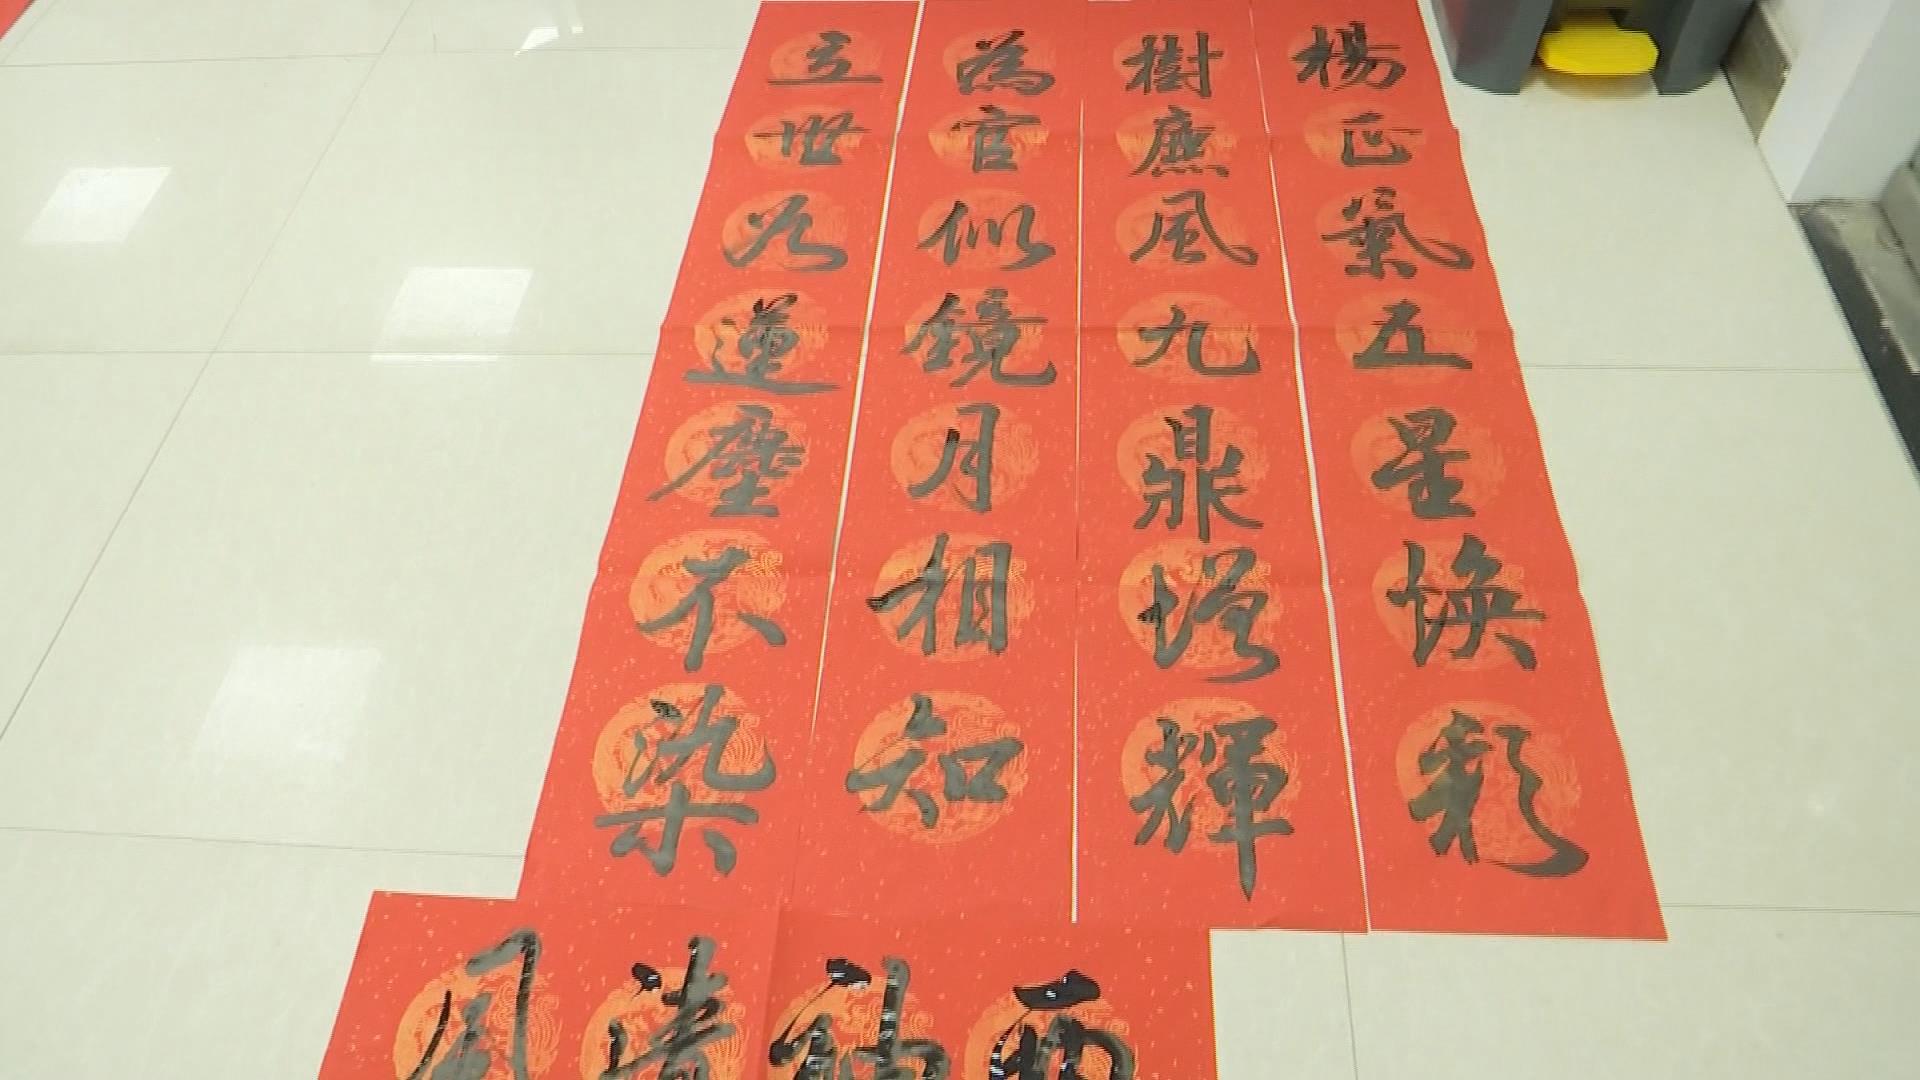 楊正氣五星焕彩
樹廉風九鼎增輝
為官似鏡月相知
立世蓮塵不染
两袖清風